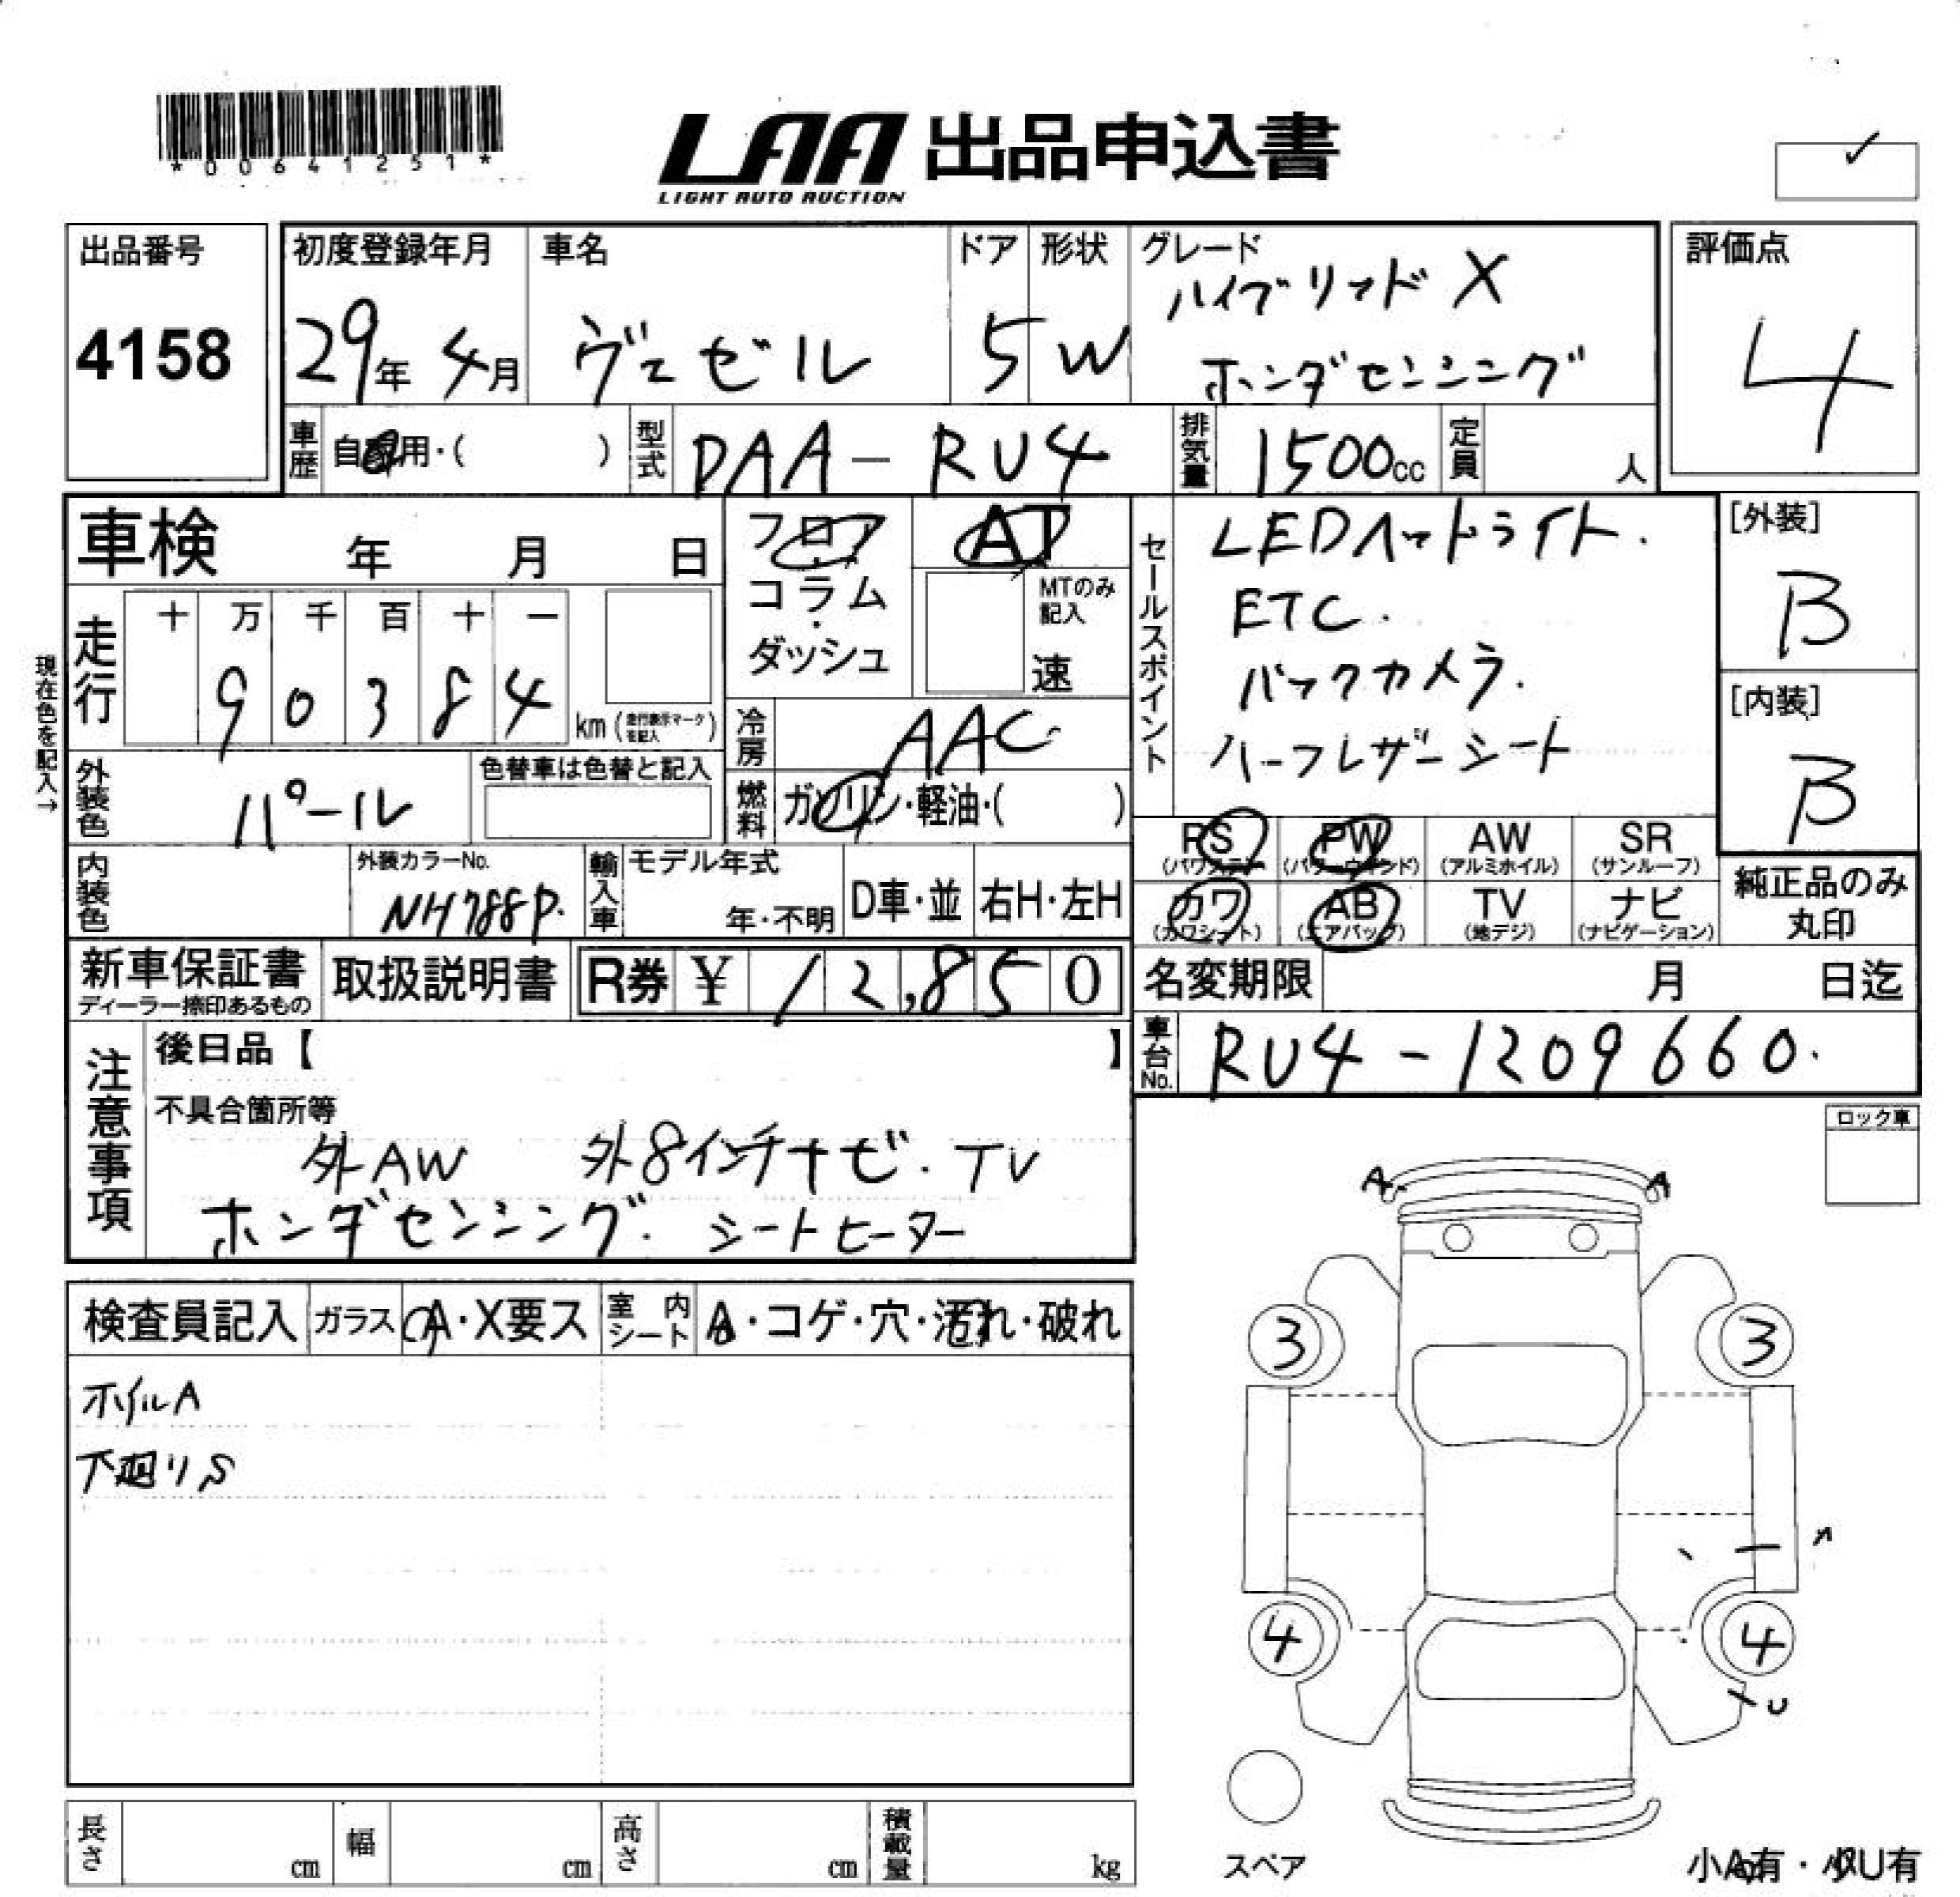 *00641251*
LAA 出品申込書
LIGHT AUTO AUCTION
✓
出品番号
4158
初度登録年月
29年 4月
車名
ヴェゼル
ドア
5
形状
W
グレード
ハイブリッド X
ホンダセンシング
評価点
4
車歴
自家用・( )
型式
DAA-RU4
排気量
1500cc
定員
人
車検 年 月 日
走行
十 万 千 百 十 一
9 0 3 8 4
km (走行表示マークを記入)
現在色を記入→
フロア・コラム・ダッシュ
AT
MTのみ記入
速
冷房
AAC
燃料
ガソリン・軽油・( )
外装色
パール
色替車は色替と記入
内装色
外装カラーNo.
NH788P.
輸入車
モデル年式
年・不明
D車・並
右H・左H
セールスポイント
LEDヘッドライト.
ETC.
バックカメラ.
ハーフレザーシート
[外装]
B
[内装]
B
PS (パワステ)
PW (パワーウインド)
AW (アルミホイル)
SR (サンルーフ)
カワ (カワシート)
AB (エアバック)
TV (地デジ)
ナビ (ナビゲーション)
純正品のみ
丸印
新車保証書
ディーラー捺印あるもの
取扱説明書
R券 ¥ 12,850
名変期限 月 日迄
車台No.
RU4-1209660.
注意事項
後日品【 】
不具合箇所等
外AW 外8インチナビ. TV
ホンダセンシング. シートヒーター
ロック車
検査員記入
ガラス
A・X要ス
室内シート
A・コゲ・穴・汚れ・破れ
ホイルA
下廻りS
A A
3 3
4 4
スペア
小A有・小U有
長さ cm
幅 cm
高さ cm
積載量 kg